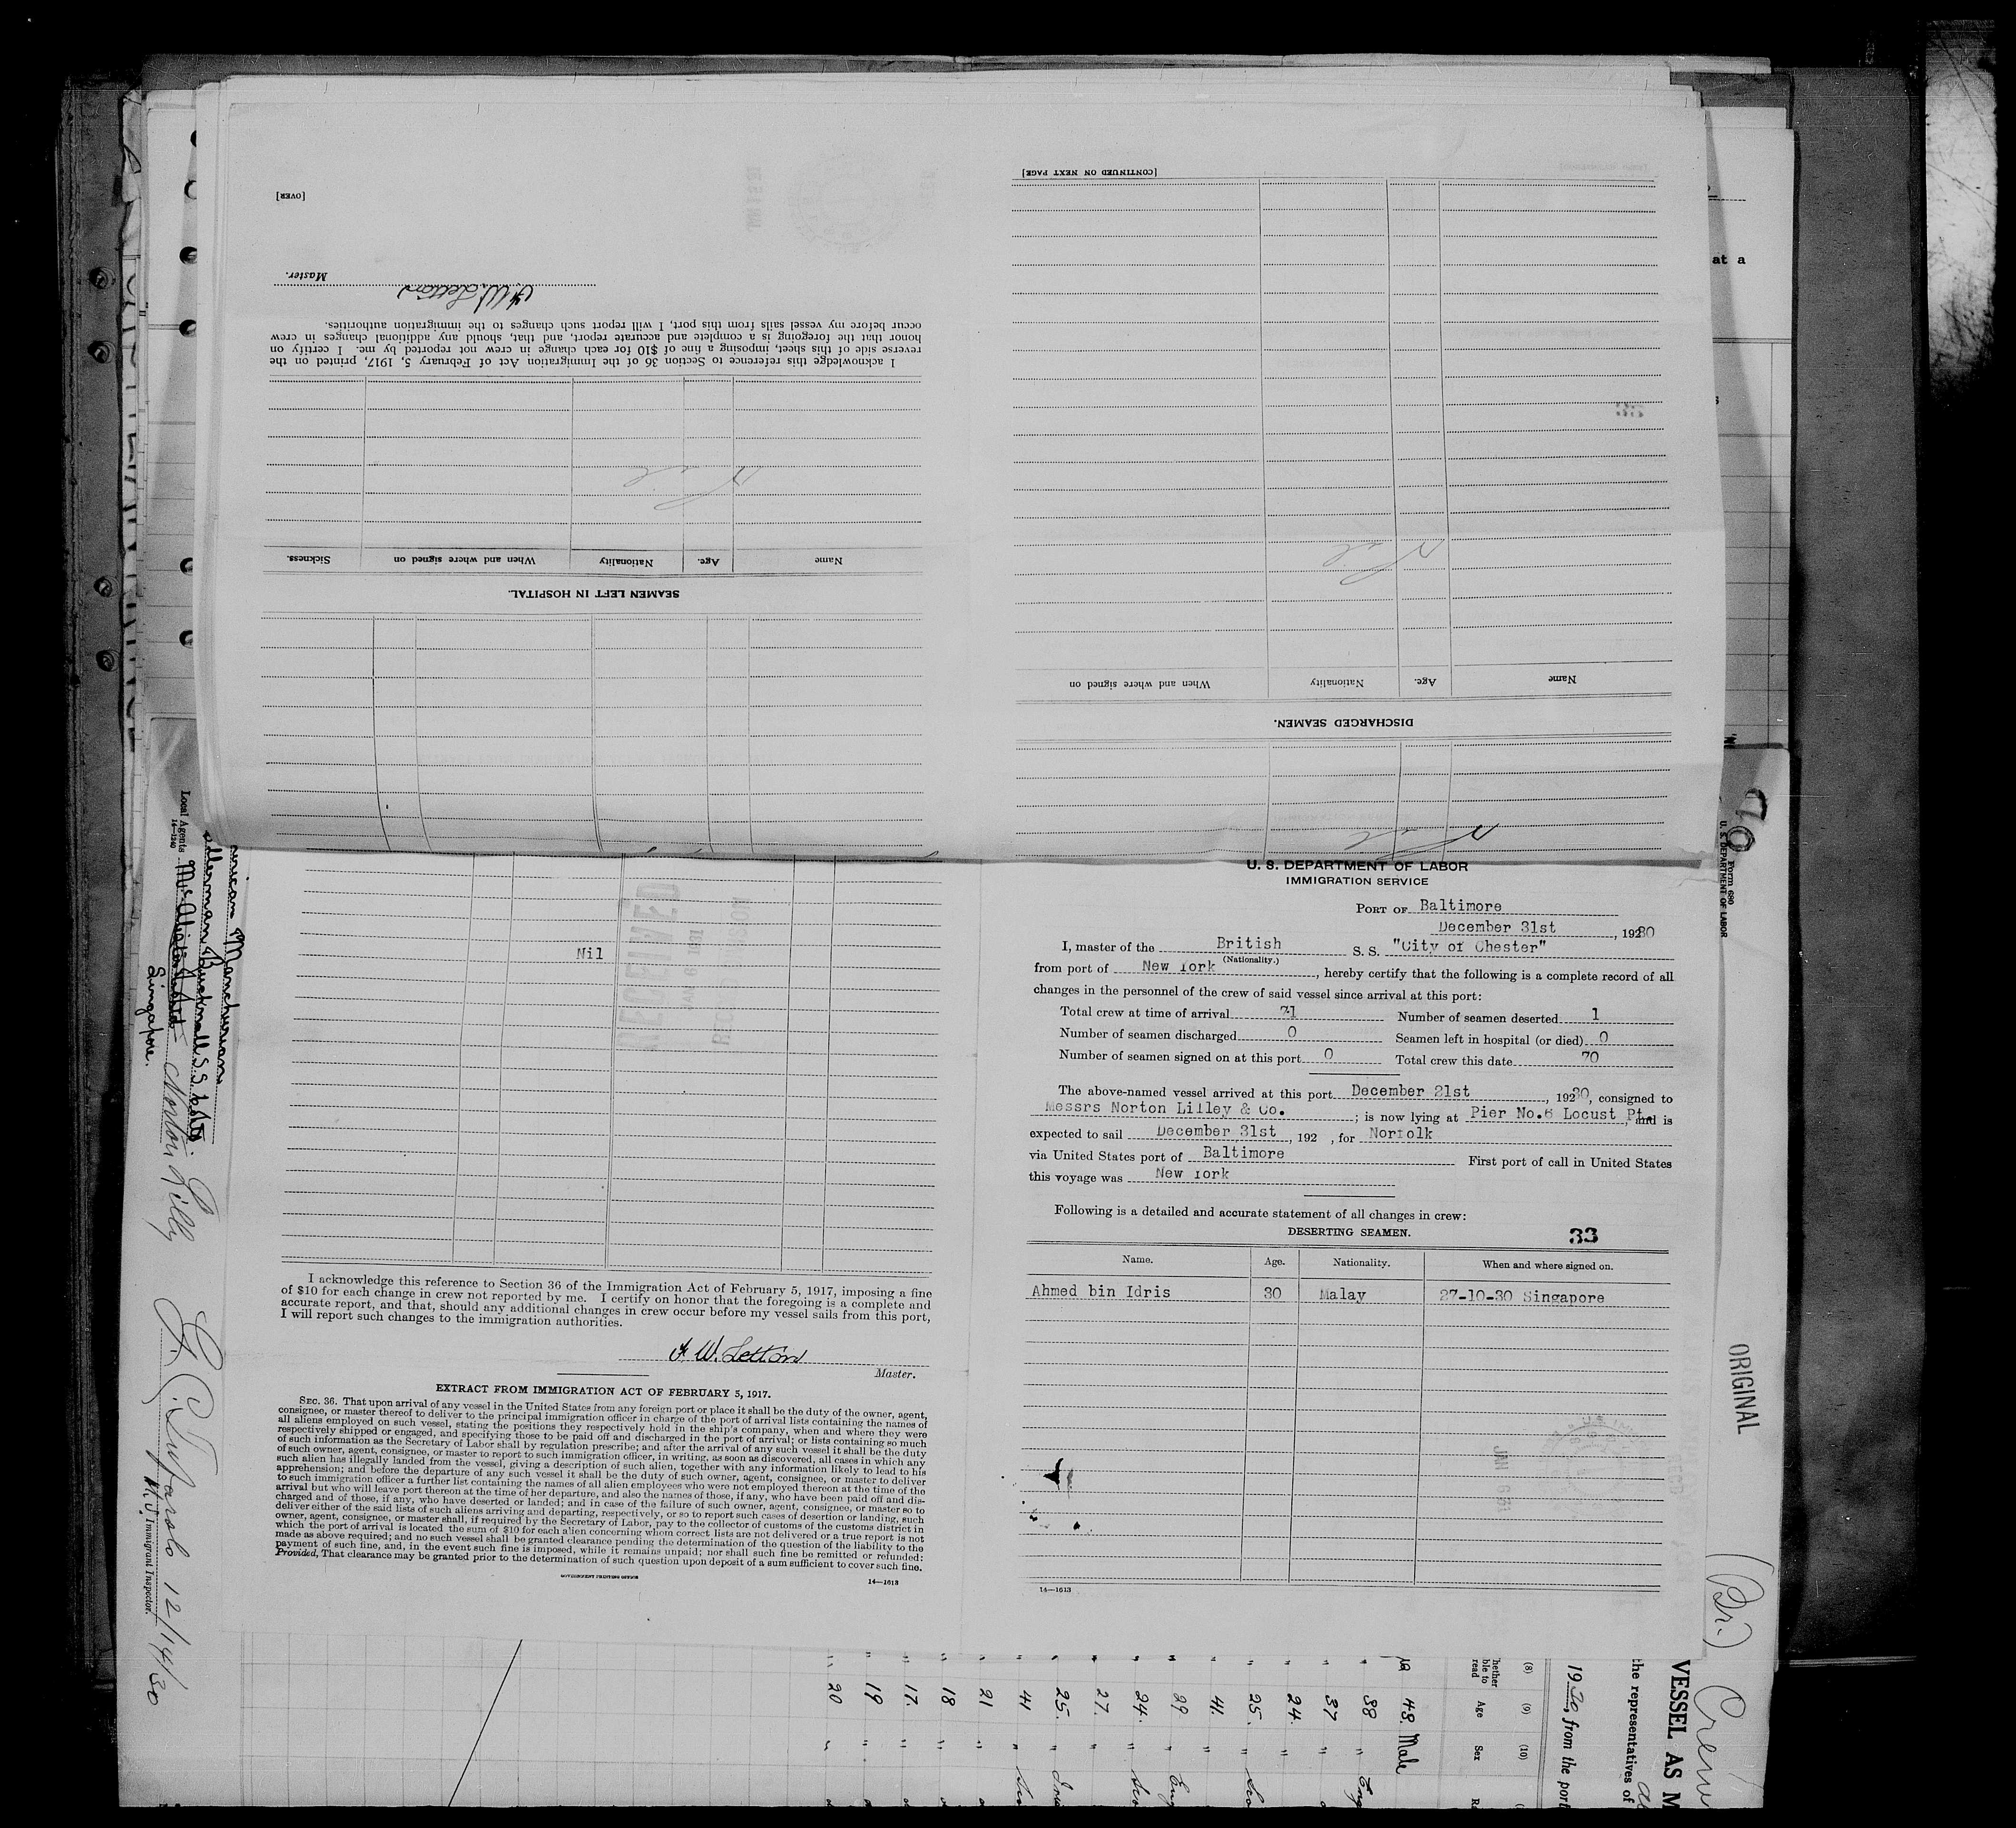 [CONTINUED ON NEXT PAGE]
Name Age. Nationality When and where signed on
DISCHARGED SEAMEN.
[OVER]
Master.
F W. Letton
I acknowledge this reference to Section 36 of the Immigration Act of February 5, 1917, printed on the
reverse side of this sheet, imposing a fine of $10 for each change in crew not reported by me. I certify on
honor that the foregoing is a complete and accurate report, and that, should any additional changes in crew
occur before my vessel sails from this port, I will report such changes to the immigration authorities.
Nil
Name Age. Nationality When and where signed on Sickness.
SEAMEN LEFT IN HOSPITAL.
Nil
Nil
U. S. DEPARTMENT OF LABOR
IMMIGRATION SERVICE
PORT OF Baltimore
December 31st, 19230
I, master of the British S. S. "City of Chester"
(Nationality.)
from port of New York, hereby certify that the following is a complete record of all
changes in the personnel of the crew of said vessel since arrival at this port:
Total crew at time of arrival 71 Number of seamen deserted 1
Number of seamen discharged 0 Seamen left in hospital (or died) 0
Number of seamen signed on at this port 0 Total crew this date 70
The above-named vessel arrived at this port December 21st, 19230, consigned to
Messrs Norton Lilley & Co.; is now lying at Pier No.6 Locust Pt., and is
expected to sail December 31st, 192 , for Norfolk
via United States port of Baltimore First port of call in United States
this voyage was New York
Following is a detailed and accurate statement of all changes in crew:
DESERTING SEAMEN. 33
Name. Age. Nationality. When and where signed on.
Ahmed bin Idris 30 Malay 27-10-30 Singapore
14—1613
Nil
RECEIVED
JAN 6 1931
I acknowledge this reference to Section 36 of the Immigration Act of February 5, 1917, imposing a fine
of $10 for each change in crew not reported by me. I certify on honor that the foregoing is a complete and
accurate report, and that, should any additional changes in crew occur before my vessel sails from this port,
I will report such changes to the immigration authorities.
F W. Letton
Master.
EXTRACT FROM IMMIGRATION ACT OF FEBRUARY 5, 1917.
SEC. 36. That upon arrival of any vessel in the United States from any foreign port or place it shall be the duty of the owner, agent,
consignee, or master thereof to deliver to the principal immigration officer in charge of the port of arrival lists containing the names of
all aliens employed on such vessel, stating the positions they respectively hold in the ship's company, when and where they were
respectively shipped or engaged, and specifying those to be paid off and discharged in the port of arrival; or lists containing so much
of such information as the Secretary of Labor shall by regulation prescribe; and after the arrival of any such vessel it shall be the duty
of such owner, agent, consignee, or master to report to such immigration officer, in writing, as soon as discovered, all cases in which any
such alien has illegally landed from the vessel, giving a description of such alien, together with any information likely to lead to his
apprehension; and before the departure of any such vessel it shall be the duty of such owner, agent, consignee, or master to deliver
to such immigration officer a further list containing the names of all alien employees who were not employed thereon at the time of the
arrival but who will leave port thereon at the time of her departure, and also the names of those, if any, who have been paid off and dis-
charged and of those, if any, who have deserted or landed; and in case of the failure of such owner, agent, consignee, or master so to
deliver either of the said lists of such aliens arriving and departing, respectively, or so to report such cases of desertion or landing, such
owner, agent, consignee, or master shall, if required by the Secretary of Labor, pay to the collector of customs of the customs district in
which the port of arrival is located the sum of $10 for each alien concerning whom correct lists are not delivered or a true report is not
made as above required; and no such vessel shall be granted clearance pending the determination of the question of the liability to the
payment of such fine, and, in the event such fine is imposed, while it remains unpaid; nor shall such fine be remitted or refunded:
Provided, That clearance may be granted prior to the determination of such question upon deposit of a sum sufficient to cover such fine.
GOVERNMENT PRINTING OFFICE
14—1613
Manchurian
Bucknall S.S.
Local Agents
14—1240
Norton Lilly
Singapore.
12/14/30
Immigrant Inspector.
at a
Form 680
U. S. DEPARTMENT OF LABOR
ORIGINAL
(Br.)
Crew
VESSEL AS M
the representatives of
1930, from the port
(8) (9) (10)
Age Sex
48. Male
38 "
37 "
24. "
25. "
41. "
29 "
24. "
27. "
25. "
41 "
21 "
18 "
17. "
19 "
20 "